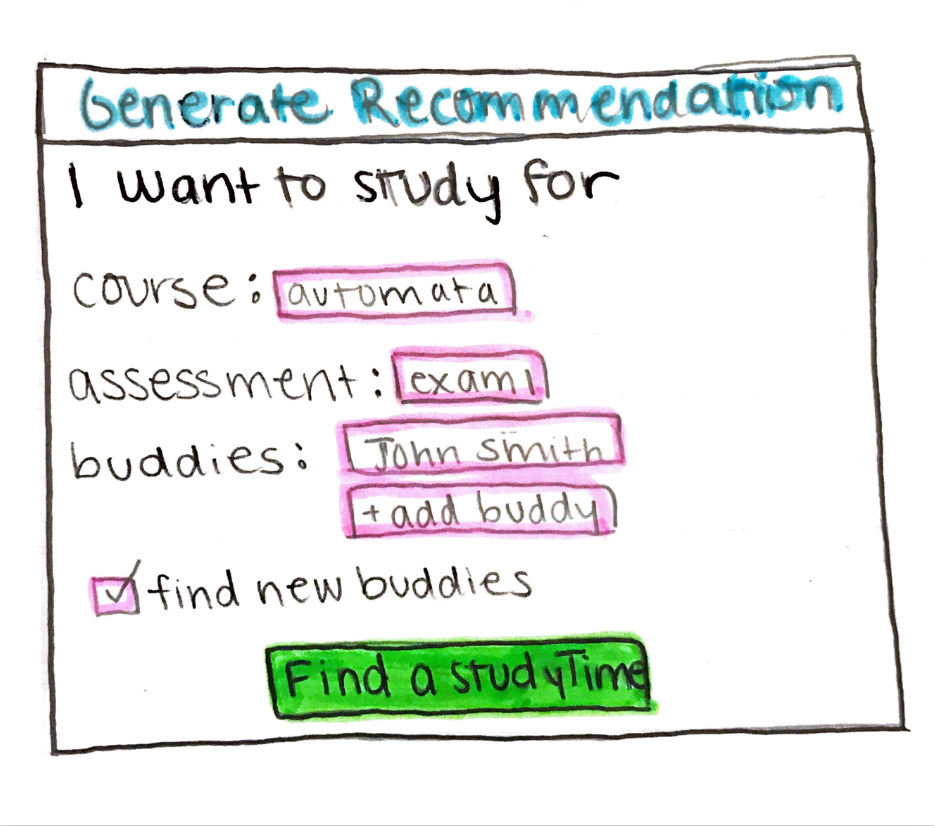 Generate Recommendation
I want to study for
course: automata
assessment: exam 1
buddies: John Smith
+ add buddy
find new buddies
Find a studyTime